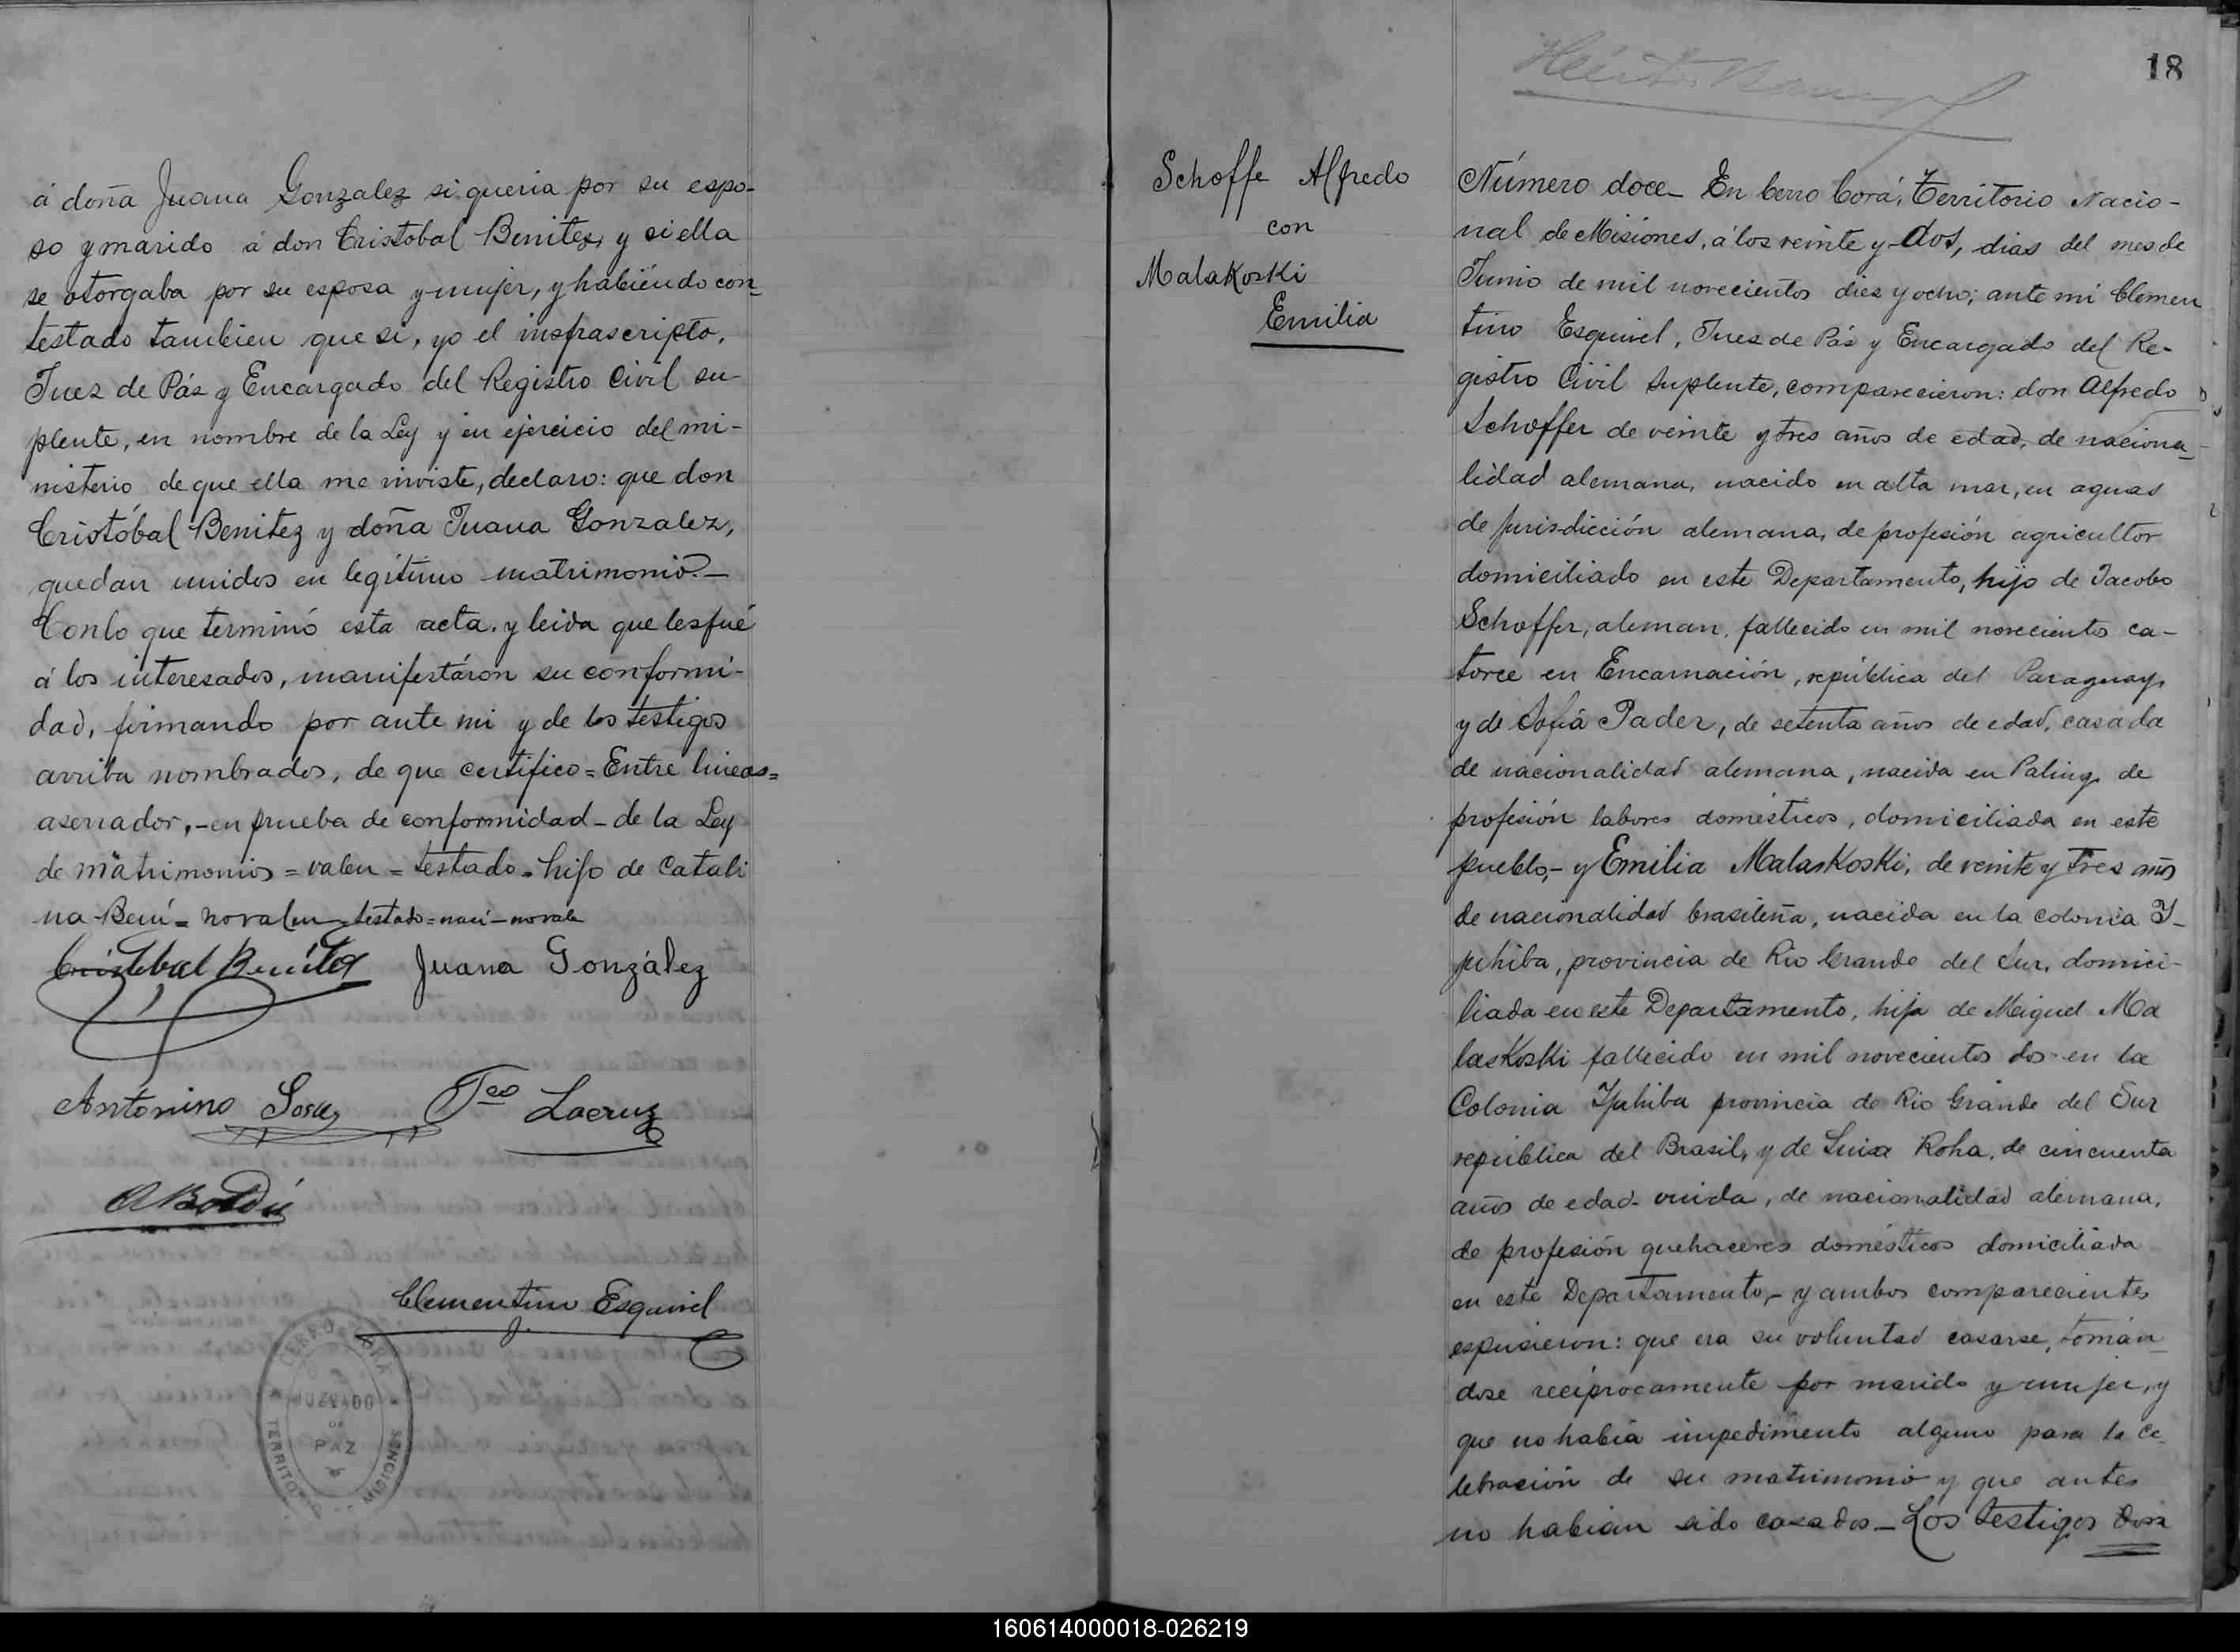 á doña Juana Gonzalez si queria por su espo-
so y marido á don Cristobal Benitez, y si ella
se otorgaba por su esposa y mujer, y habiendo con-
testado tambien que si, yo el insfrascripto,
Juez de Páz y Encargado del Registro Civil su-
plente, en nombre de la Ley y en ejercicio del mi-
nisterio de que ella me inviste, declaro: que don
Cristóbal Benitez y doña Juana Gonzalez,
quedan unidos en legítimo matrimonio.—
Con lo que terminó esta acta, y leida que les fué
á los interesados, manifestáron su conformi-
dad, firmando por ante mi y de los testigos
arriba nombrados, de que certifico = Entre lineas =
aserrador, - en prueba de conformidad - de la Ley
de matrimonios = valen = testado = hijo de Catali
na Bení = no valen - testado = naci - no vale
Cristobal Benítez Juana González
Antonino Sosa Fco Lacruz
Clementino Esquivel
CERRO CORÁ
JUZGADO
DE
PAZ
TERRITORIO MISIONES
18
Schoffe Alfredo
con
Malakoski
Emilia
Número doce — En Cerro Corá, Territorio Nacio-
nal de Misiones, á los veinte y dos, dias del mes de
Junio de mil novecientos diez y ocho; ante mi Clemen
tino Esquivel, Juez de Páz y Encargado del Re-
gistro Civil Suplente, comparecieron: don Alfredo
Schoffer de veinte y tres años de edad, de naciona-
lidad alemana, nacido en alta mar, en aguas
de jurisdicción alemana, de profesión agricultor
domiciliado en este Departamento, hijo de Jacobo
Schoffer, aleman, fallecido en mil novecientos ca-
torce en Encarnación, república del Paraguay,
y de Sofía Pader, de setenta años de edad, casada
de nacionalidad alemana, nacida en Paling, de
profesión labores domésticos, domiciliada en este
pueblo,- y Emilia Malaskoski, de veinte y tres años
de nacionalidad brasileña, nacida en la colonia Y-
juhiba, provincia de Rio Grande del Sur, domici-
liada en este Departamento, hija de Miguel Ma
laskoski fallecido en mil novecientos dos en la
Colonia Yjuhiba provincia de Rio Grande del Sur
república del Brasil, y de Luisa Roha, de cincuenta
años de edad - viuda, de nacionalidad alemana,
de profesión quehaceres domésticos domiciliada
en este Departamento,- y ambos comparecientes
espusieron: que era su voluntad casarse, tomán-
dose recíprocamente por marido y mujer, y
que no habia impedimento alguno para la ce-
lebración de su matrimonio y que antes
no habian sido casados — Los testigos Don
160614000018-026219